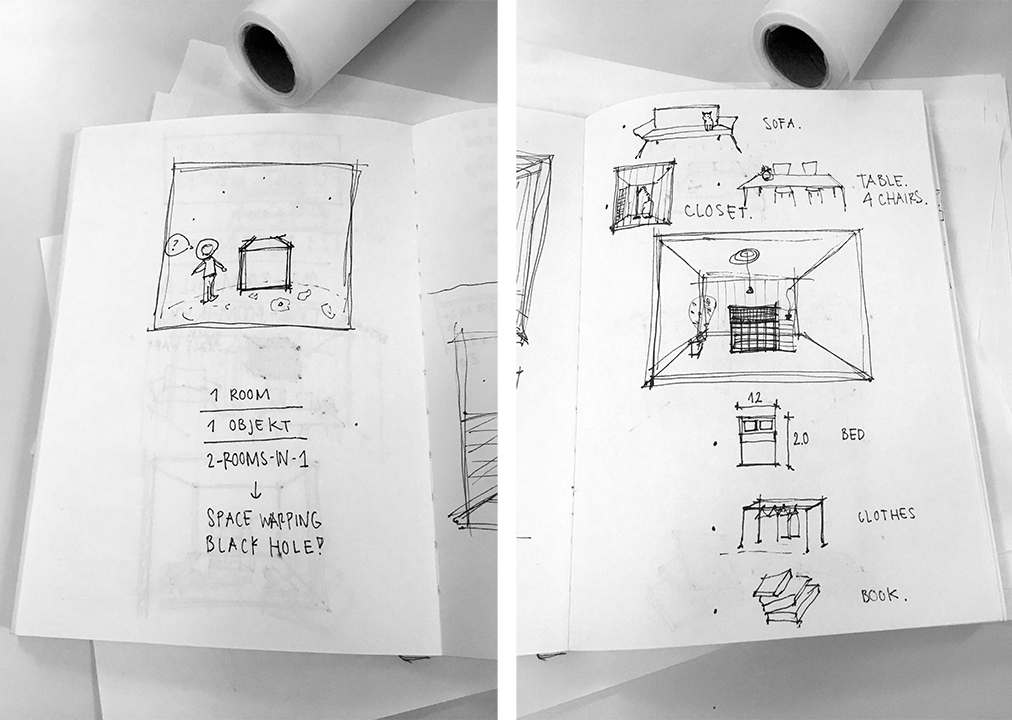 ?
1 ROOM
1 OBJEKT
2-ROOMS-IN-1
↓
SPACE WARPING
BLACK HOLE!
SOFA.
TABLE.
4 CHAIRS.
CLOSET.
1.2
2.0
BED
CLOTHES
BOOK.